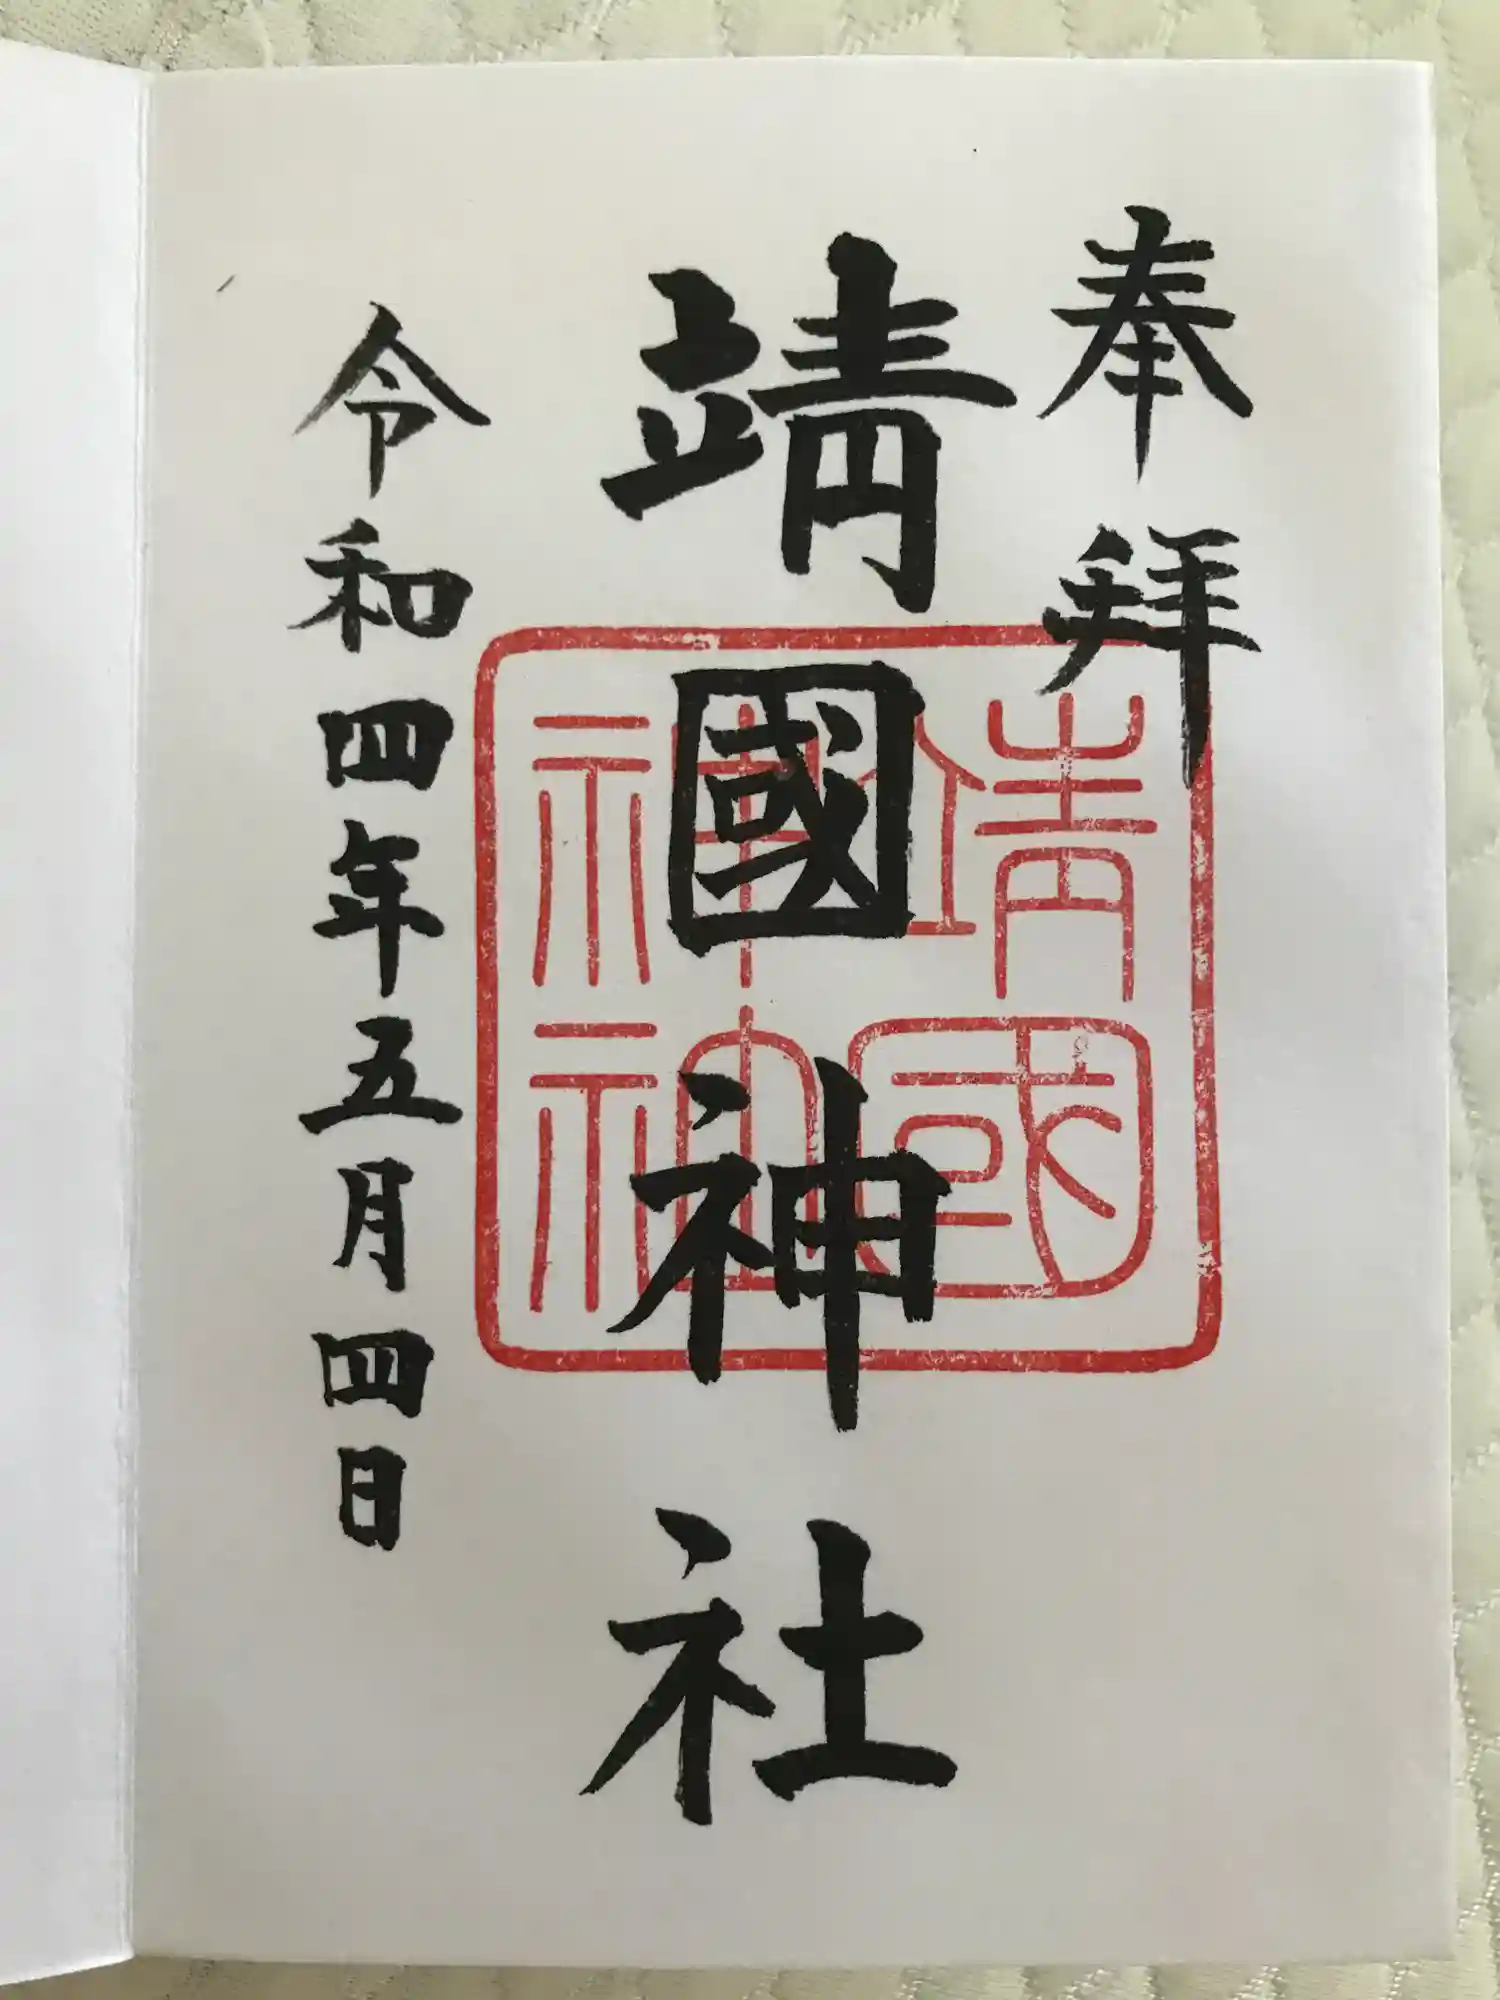 奉拜
靖國神社
靖國
神社
令和四年五月四日